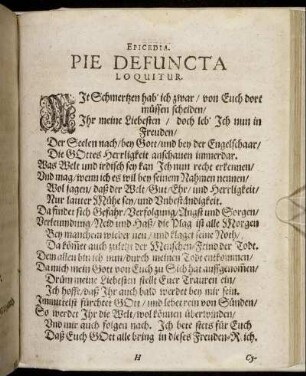 EPICEDIA.
PIE DEFUNCTA
LOQUITUR.
MIt Schmertzen hab' ich zwar / von Euch dort
müssen scheiden /
Ihr meine Liebesten / doch leb' Ich nun in
Freuden /
Der Seelen nach / bey Gott / und bey der Engelschaar /
Die GOttes Herrligkeit anschauen immerdar.
Was Welt und irdisch sey kan Ich nun recht erkennen /
Vnd mag / wenn ich es wil bey seinem Nahmen nennen /
Wol sagen / daß der Welt / Gut / Ehr / und Herrligkeit /
Nur lauter Mühe sey / und Unbeständigkeit.
Da findet sich Gefahr / Verfolgung / Angst und Sorgen /
Verleumdung / Neid und Haß / die Plag ist alle Morgen
Bey manchem wieder neu / und klaget seine Noth /
Da kömt auch zuletzt der Menschen-Feind der Todt.
Dem allen bin ich nun / durch meinen Todt entkommen /
Da mich mein Gott von Euch zu Sich hat auffgenommen /
Drüm meine Liebesten stellt Euer Trauren ein /
Ich hoffe / daß Ihr auch bald werdet bey mir sein.
Immittelst fürchtet GOtt / und lebet rein von Sünden /
So werdet Ihr die Welt / wol können überwinden /
Vnd mir auch folgen nach. Ich bete stets für Euch
Daß Euch GOtt alle bring in dieses Freuden-Reich.
H Cy-